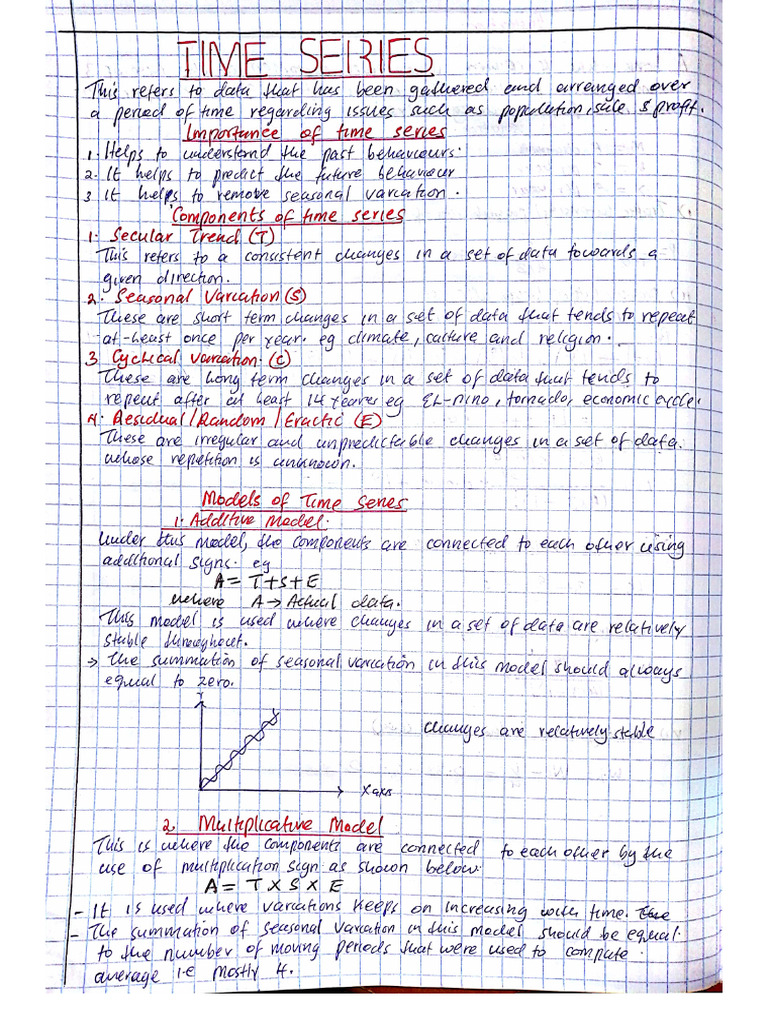 TIME SEIRIES
This refers to data that has been gathered and arranged over
a period of time regarding issues such as population, sale & profit.
Importance of time series
1. Helps to understand the past behaviours.
2. It helps to predict the future behaviour
3 It helps to remove seasonal variation.
Components of time series
1. Secular Trend (T)
This refers to a consistent changes in a set of data towards a
given direction.
2. Seasonal Variation (S)
These are short term changes in a set of data that tends to repeat
at-least once per year. eg climate, culture and religion.
3. Cyclical variation. (C)
These are long term changes in a set of data that tends to
repeat after at least 14 years eg EL-nino, tornado, economic cycle.
4. Residual / Random / Eractic (E)
These are irregular and unpredictable changes in a set of data.
whose repetition is unknown.
Models of Time Series
1. Additive Model.
Under this model, the components are connected to each other using
additional signs. eg
A = T+S+E
where A → Actual data.
This model is used where changes in a set of data are relatively
stable throughout.
→ The summation of seasonal variation in this model should always
equal to zero.
Y
changes are relatively stable
X axis
2. Multiplicative Model
This is where the components are connected to each other by the
use of multiplication sign as shown below.
A = T X S X E
- It is used where variations keeps on increasing with time. The
- The summation of seasonal variation in this model should be equal
to the number of moving periods that were used to compute
average i.e mostly 4.